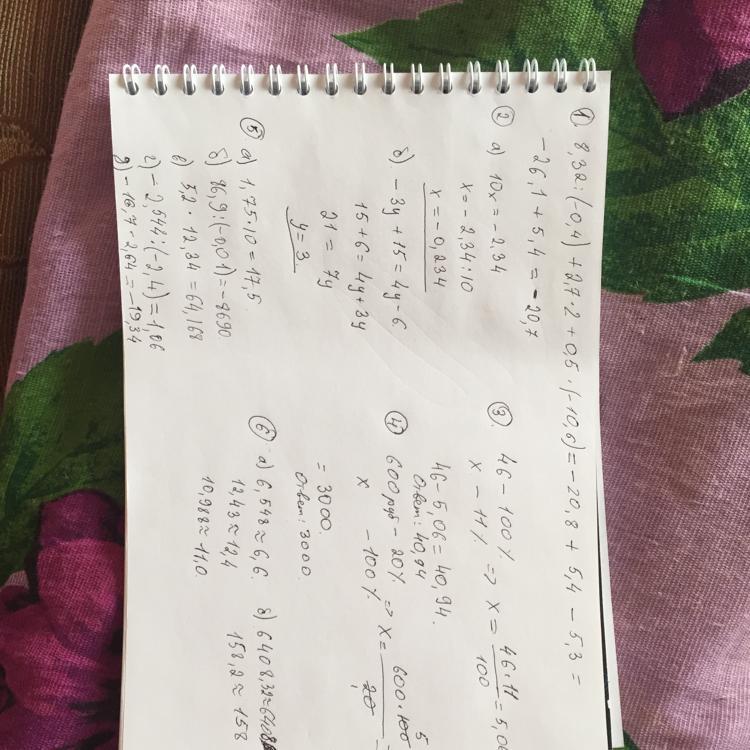 ① 8,32:(-0,4)+2,7·2+0,5·(-10,6)=-20,8+5,4-5,3=
-26,1+5,4=-20,7
② а) 10x=-2,34
x=-2,34:10
x=-0,234
б) -3y+15=4y-6
15+6=4y+3y
21=7y
y=3
③ 46-100%
x-11% => x=46·11/100=5,06
46-5,06=40,94.
Ответ: 40,94
④ 600 руб-20%
x -100% => x=600·100 5/20=
=3000.
Ответ: 3000.
⑤ а) 1,75·10=17,5
б) 86,9:(-0,01)=-8690
в) 5,2·12,34=64,168
г) -2,544:(-2,4)=1,06
⑥ а) 6,548≈6,6
12,43≈12,4
10,988≈11,0
б) 6408,32≈6408
158,2≈158